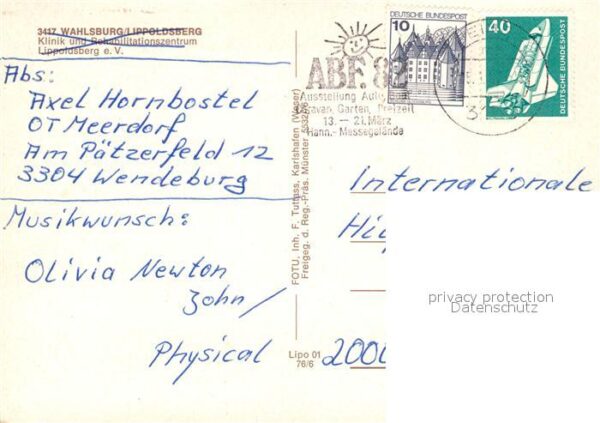 3417 WAHLSBURG/LIPPOLDSBERG
Klinik und Rehabilitationszentrum
Lippoldsberg e. V.
Abs:
Axel Hornbostel
OT Meerdorf
Am Pätzerfeld 12
3304 Wendeburg
Musikwunsch:
Olivia Newton
John/
Physical
FOTU, Inh. F. Tuttass, Karlshafen (Weser)
Freigeg. d. Reg.-Präs. Münster
Lipo 01
76/6
ABF. 82
Ausstellung Auto
Caravan, Garten, Freizeit
13. - 21. März
Hann.- Messegelände
10
DEUTSCHE BUNDESPOST
40
DEUTSCHE BUNDESPOST
Internationale
privacy protection
Datenschutz